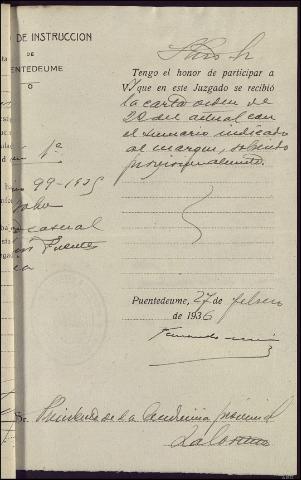 DE INSTRUCCION
DE
PUENTEDEUME
Tengo el honor de participar a
V. que en este Juzgado se recibió
la carta orden de
22 del actual con
el sumario indicado
al margen, sobseido
provisionalmente.
1ª
99-1935
casual
Fuentes
Puentedeume, 27 de febrero
de 1936
Sr. Presidente de la Audiencia provincial
La Coruña